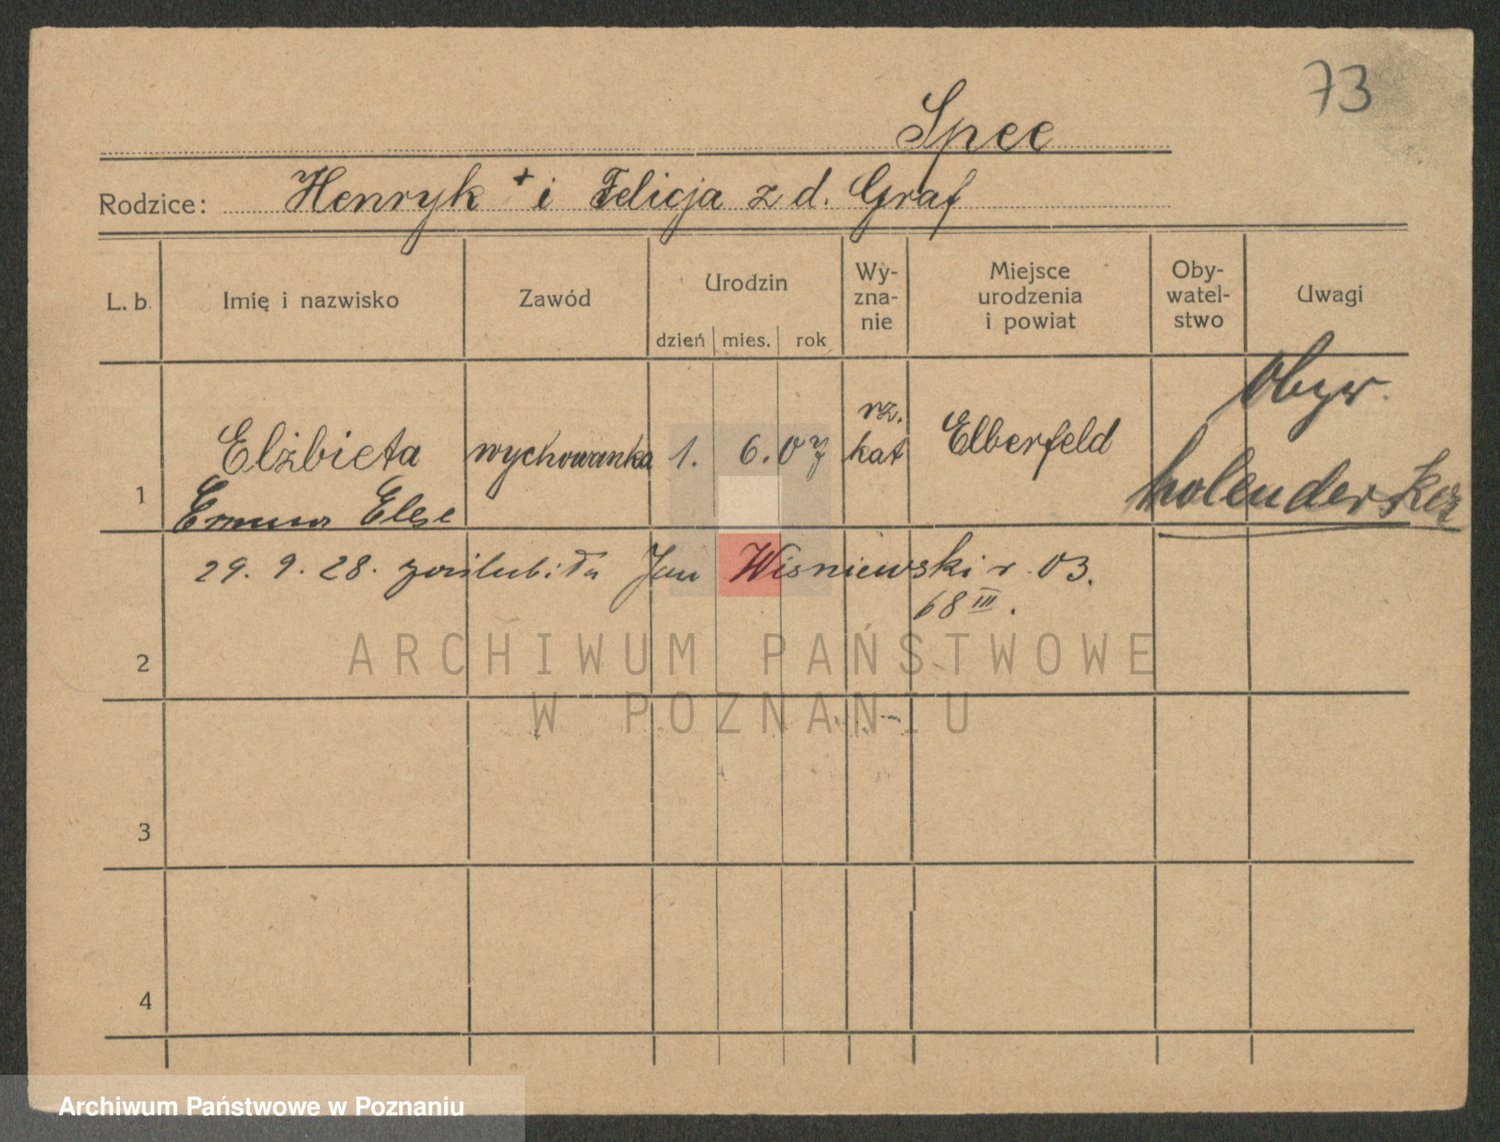 73
Spee
Rodzice: Henryk + i Felicja z d. Graf
L. b. Imię i nazwisko Zawód Urodzin dzień mies. rok Wy-zna-nie Miejsce urodzenia i powiat Oby-watel-stwo Uwagi
1 Elżbieta wychowanka 1. 6. 07 rz. kat Elberfeld obyw.
Emma Else holenderska
29. 9. 28. zaślubiła Jan Wiśniewski r. 03.
68 III.
2
ARCHIWUM PAŃSTWOWE
W POZNANIU
3
4
Archiwum Państwowe w Poznaniu